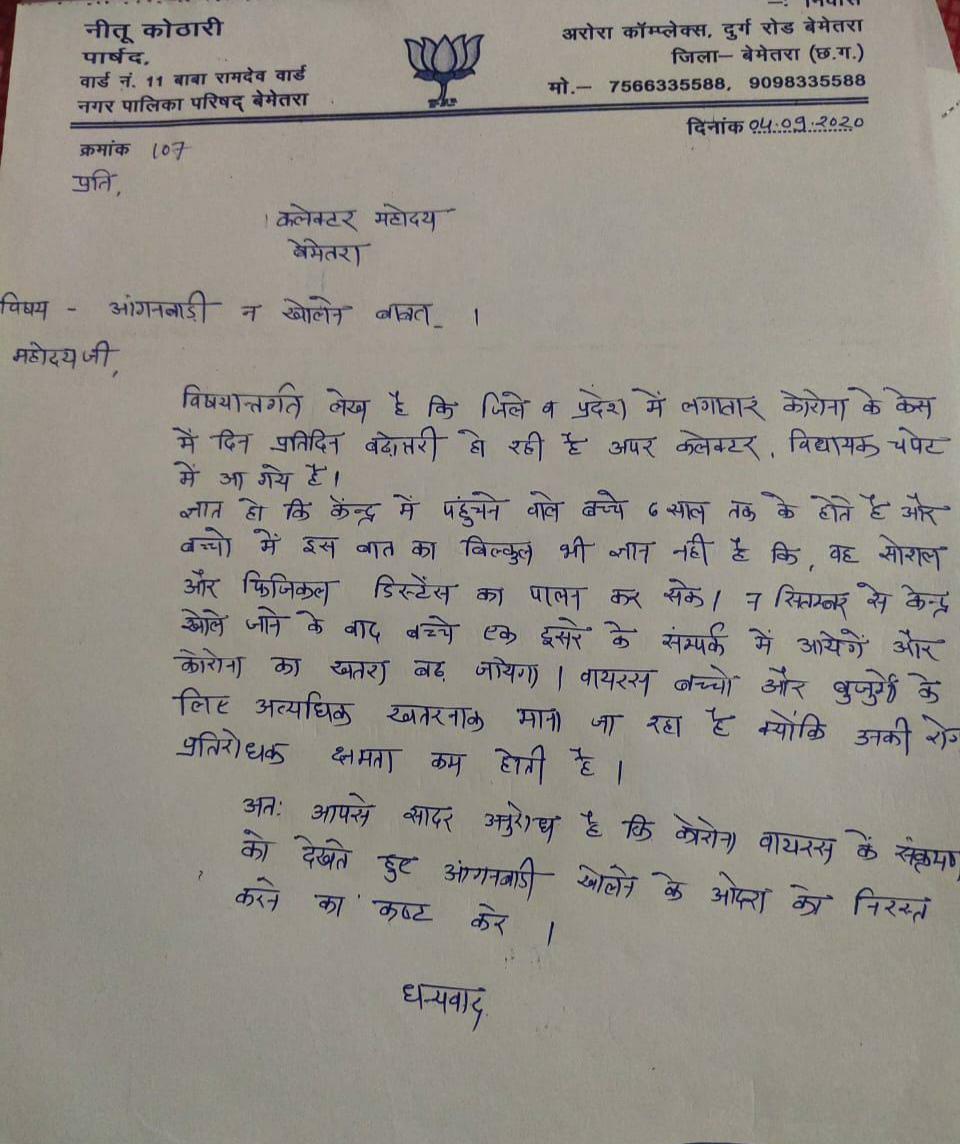 नीतू कोठारी
पार्षद,
वार्ड नं. 11 बाबा रामदेव वार्ड
नगर पालिका परिषद् बेमेतरा
—: निवास
अरोरा कॉम्प्लेक्स, दुर्ग रोड बेमेतरा
जिला– बेमेतरा (छ.ग.)
मो.– 7566335588, 9098335588
दिनांक 04.09.2020
क्रमांक 107
प्रति,
कलेक्टर महोदय
बेमेतरा
विषय - आंगनबाड़ी न खोलने बाबत_ ।
महोदय जी,
विषयान्तर्गत लेख है कि जिले व प्रदेश में लगातार कोरोना के केस
में दिन प्रतिदिन बढ़ोत्तरी हो रही है अपर कलेक्टर, विधायक चपेट
में आ गये है।
ज्ञात हो कि केन्द्र में पहुंचने वाले बच्चे 6 साल तक के होते है और
बच्चो में इस बात का बिल्कुल भी ज्ञान नही है कि, वह सोशल
और फिजिकल डिस्टेंस का पालन कर सके। 7 सितम्बर से केन्द्र
खोले जाने के बाद बच्चे एक दूसरे के संम्पर्क में आयेगें और
कोरोना का खतरा बढ़ जायेगा। वायरस बच्चो और बुजुर्गो के
लिए अत्यधिक खतरनाक माना जा रहा है क्योंकि उनकी रोग
प्रतिरोधक क्षमता कम होती है ।
अतः आपसे सादर अनुरोध है कि कोरोना वायरस के संक्रमण
को देखते हुए आंगनबाड़ी खोलने के आदेश को निरस्त
करने का कष्ट करे ।
धन्यवाद